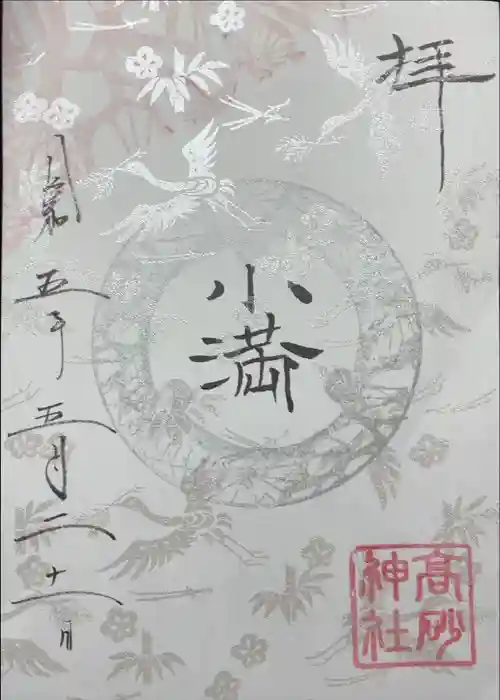 拝
小満
令和五年五月二十一日
髙砂
神社